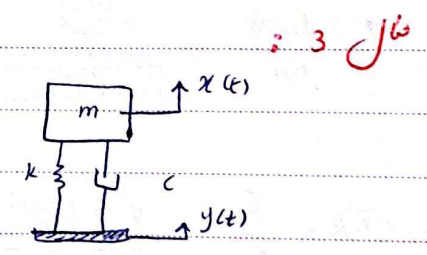 مثال 3 :
x(t)
m
k
c
y(t)